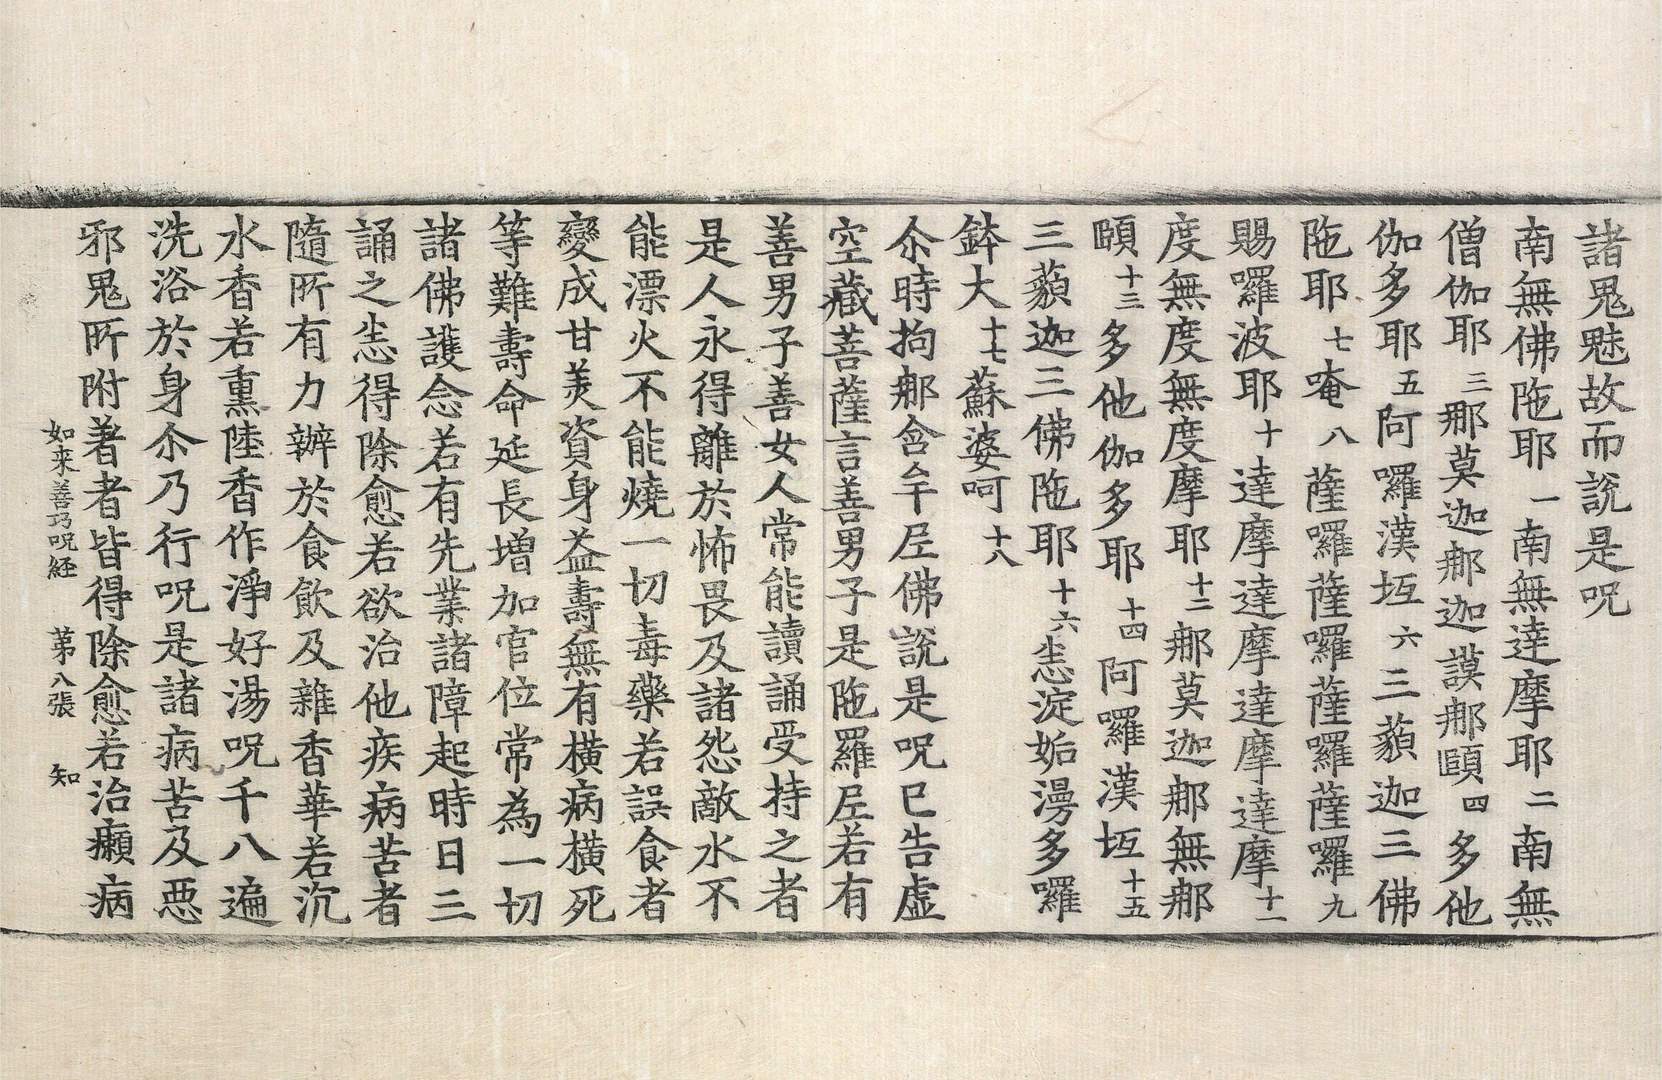 諸鬼魅故而說是呪
南無佛陁耶一南無達摩耶二南無
僧伽耶三那莫迦䣯迦謨䣯頤四多他
伽多耶五阿囉漢垢六三藐迦三佛
陁耶七唵八薩囉薩囉薩囉薩囉九
賜囉波耶十達摩達摩達摩達摩十一
度無度無度摩耶十二䣯莫迦䣯無䣯
頤十三多他伽多耶十四阿囉漢垢十五
三藐迦三佛陁耶十六恙淀姤漫多囉
鉢大十七蘇婆呵十八
尒時拘䣯含牟𡰱佛說是呪已告虛
空藏菩薩言善男子是陁羅𡰱若有
善男子善女人常能讀誦受持之者
是人永得離於怖畏及諸怨敵水不
能漂火不能燒一切毒藥若誤食者
變成甘羙資身益壽無有橫病橫死
等難壽命延長增加官位常為一切
諸佛護念若有先業諸障起時日三
誦之恙得除愈若欲治他疾病苦者
隨所有力辦於食飲及雜香華若沉
水香若熏陸香作淨好湯呪千八遍
洗浴於身尒乃行呪是諸病苦及惡
邪鬼所附著者皆得除愈若治癩病
如来善巧呪経 苐八張 知